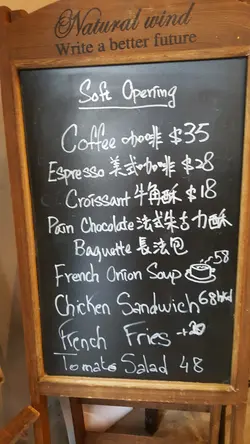 Natural wind
Write a better future
Soft Opening
Coffee 咖啡 $35
Espresso 美式咖啡 $28
Croissant 牛角酥 $18
Pain Chocolate 法式朱古力酥
Baguette 長法包
French Onion Soup 58
Chicken Sandwich 68
French Fries +20
Tomato Salad 48